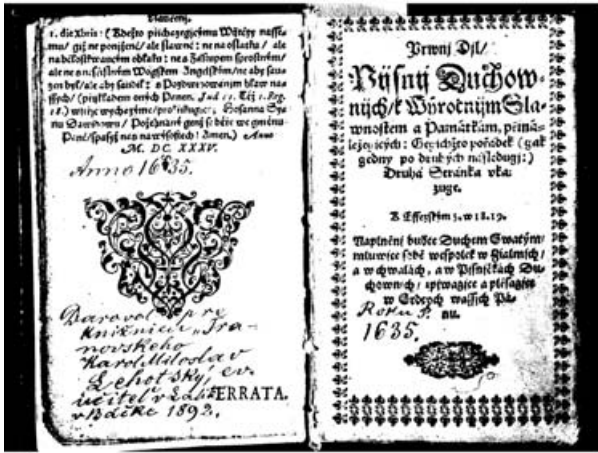 1. die Xbris: (Kdežto přicházegjcýmu Wjtězy nasse-
mu/ giž ne ponjžené/ ale slawné: ne na oslátku/ ale
na běloskwaucým obláku: ne s Zástupem sprostným/
ale ne s nesčjslným Wogskem Angelským/ ne aby sau-
zen byl/ ale aby saudil: s Pozdwihowánjm hlaw na-
ssých/ (přjkladem oných Panen. Jud 11. Též 1. Reg.
18.) wycházýme/ Hosanna Sy-
nu Dawidowu/ Požehnaný genž se béře we gménu
Páně/ spasyž nás na wýsostech: Amen.) Anno
M. DC. XXXV.
Anno 1635.
Daroval pre
knižnicu „Tra-
novského
Karol Miloslav
Lehotský, ev.
učiteľ v
ERRATA.
v Báčke 1892.
Prwnj Djl/
Pjsnij Duchow-
nijch/ k Weyročnijm Sla-
wnostem a Památkám, přiná-
ležegjcých: Gegichžto pořádek (gak
gedny po druhých následugj:)
Druhá Stránka vka-
zuge.
K Effezským 5. w 18. 19.
Naplněni buďte Duchem Swatým
mluwjce sobě wespolek w Žialmjch/
a w chwalách, a w Pjsničkách Du-
chownjch/ zpjwagjce a plésagjce
w Srdcych wassých Pá-
nu.
Roku P.
1635.